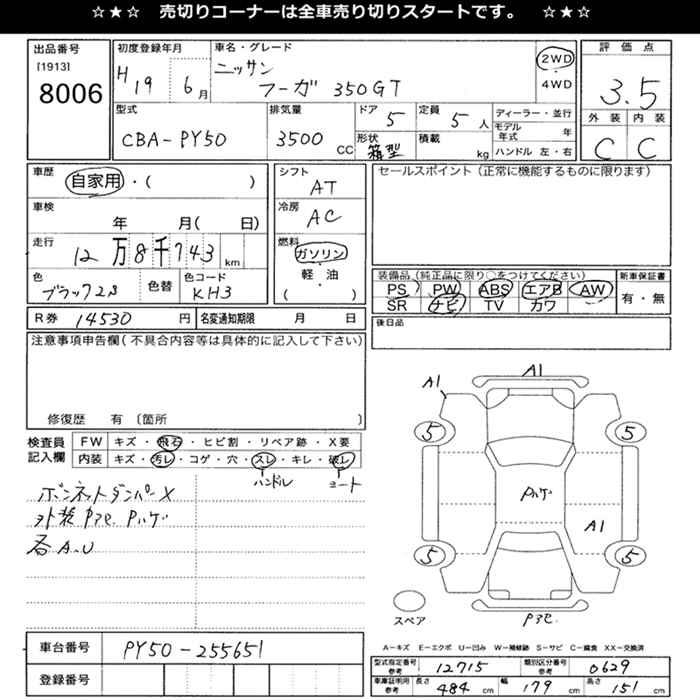 ☆★☆ 売切りコーナーは全車売り切りスタートです。 ☆★☆
出品番号
[1913]
8006
初度登録年月
H19 6月
車名・グレード
ニッサン
フーガ 350GT
2WD
・
4WD
評価点
3.5
外装 内装
C C
型式
CBA-PY50
排気量
3500 CC
ドア
5
形状
箱型
定員
5人
積載
kg
ディーラー・並行
モデル年式 年
ハンドル 左・右
車歴
自家用・( )
車検
年 月( 日)
走行
12万8千743km
色
ブラック2S
色替
色コード
KH3
シフト
AT
冷房
AC
燃料
ガソリン
・
軽・油
( )
セールスポイント(正常に機能するものに限ります)
装備品(純正品に限り○をつけてください)
PS PW ABS エアB AW
SR ナビ TV カワ
新車保証書
有・無
後日品
R券 14530円
名変通知期限 月 日
注意事項申告欄(不具合内容等は具体的に記入して下さい)
修復歴 有〔箇所 〕
検査員
記入欄
FW キズ・飛石・ヒビ割・リペア跡・X要
内装 キズ・汚レ・コゲ・穴・スレ・キレ・破レ
ハンドル シート
ボンネットダンパーX
外装P3セ Pハゲ
各A.U
A1
A1
5 5
Pハゲ
A1
5 5
スペア
P3セ
車台番号 PY50-255651
登録番号
A−キズ E−エクボ U−凹み W−補修跡 S−サビ C−腐食 XX−交換済
型式指定番号
参考
12715
類別区分番号
参考
0629
車庫証明用
参考
長さ 484cm
幅 179cm
高さ 151cm